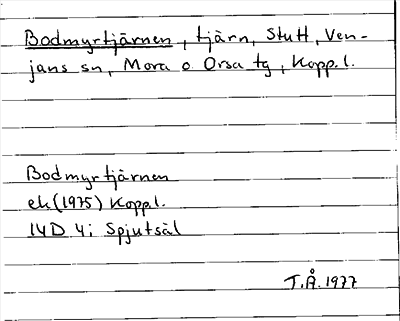 Bodmyrtjärnen, tjärn, Stutt, Ven-
jans sn, Mora o Orsa tg, Kopp.l.
Bodmyrtjärnen
ek(1975) Kopp.l.
14D 4i Spjutsäl
T.Å. 1977